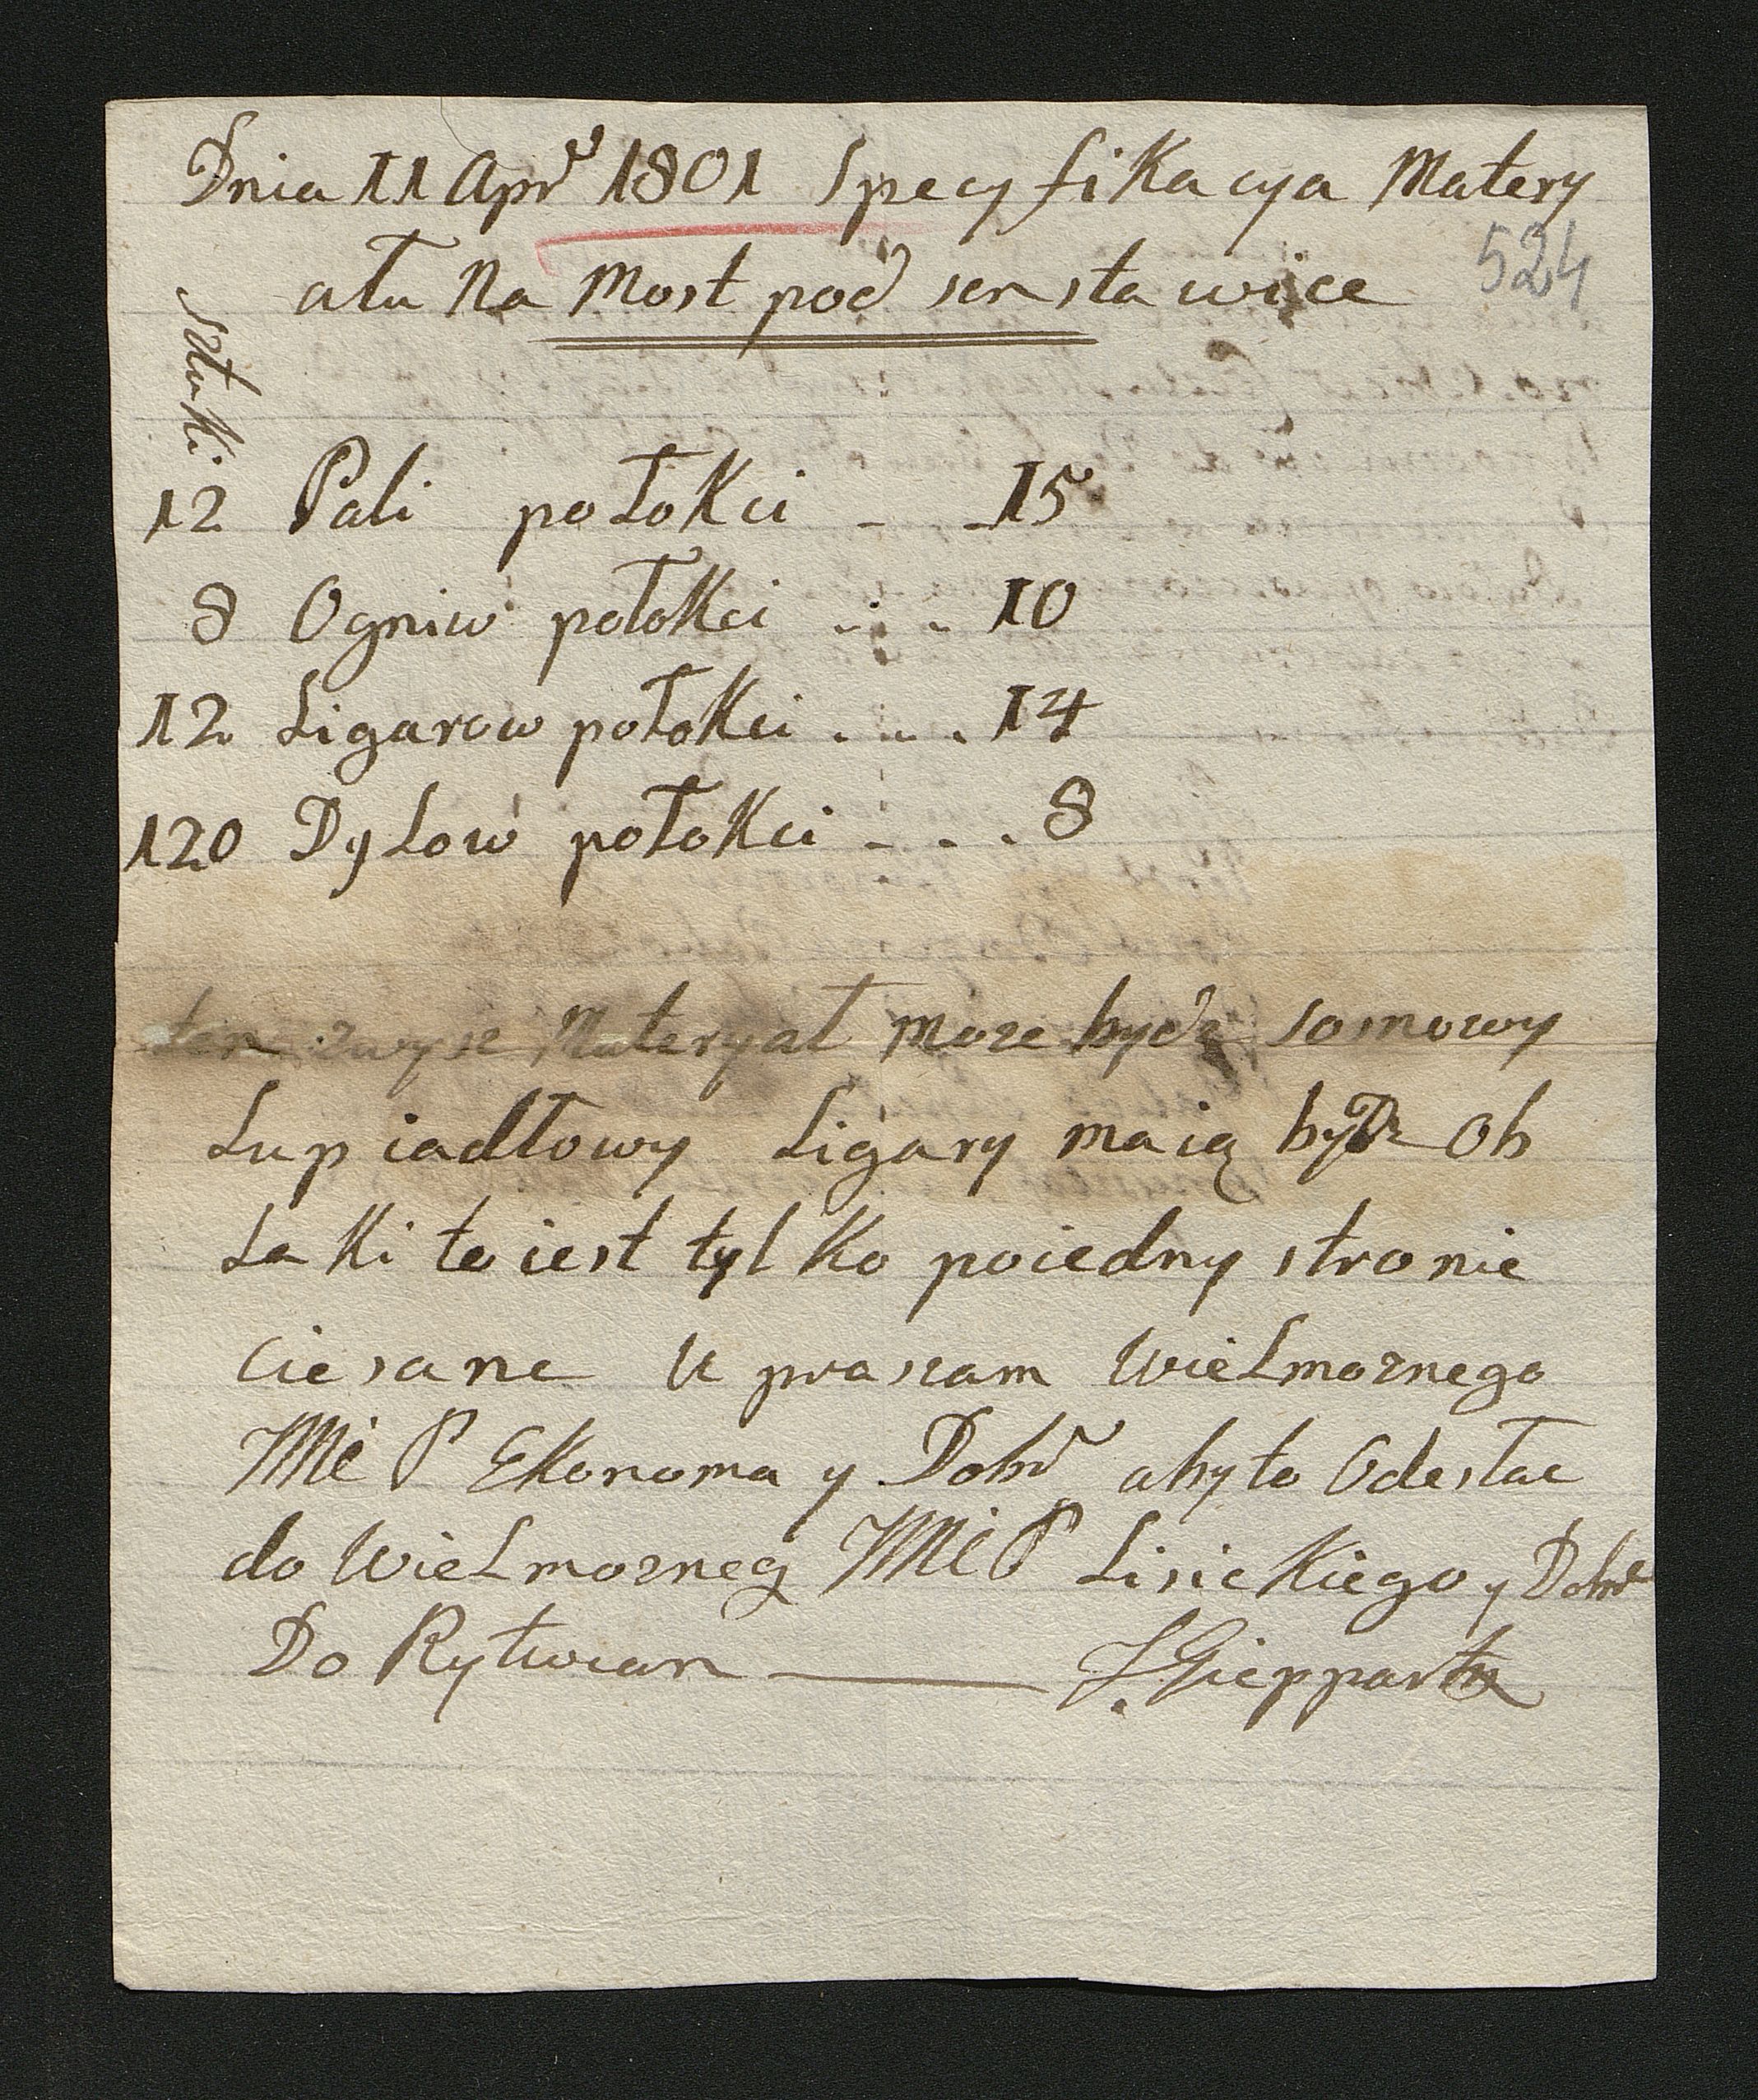 Dnia 11 Apr 1801 Specyfikacya Matery
ału Na Most pod senstawice
524
sztuki
12 Pali połokci - - 15
8 Ogniw połokci - - - 10
12 Ligarow połokci . - . 14
120 Dylow połokci - - . 8
ten zwysz Materyał moze bydz sosnowy
Lup iadłowy Ligary maią bydz Ob
Laki to iest tylko poiedny stronie
ciesane Upraszam Wielmoznego
JMCP Ekonoma y Dobr abyto Odesłac
do Wielmozneg JMCP Lisickiego y Dobr
Do Rytwian —— J. Gieppart